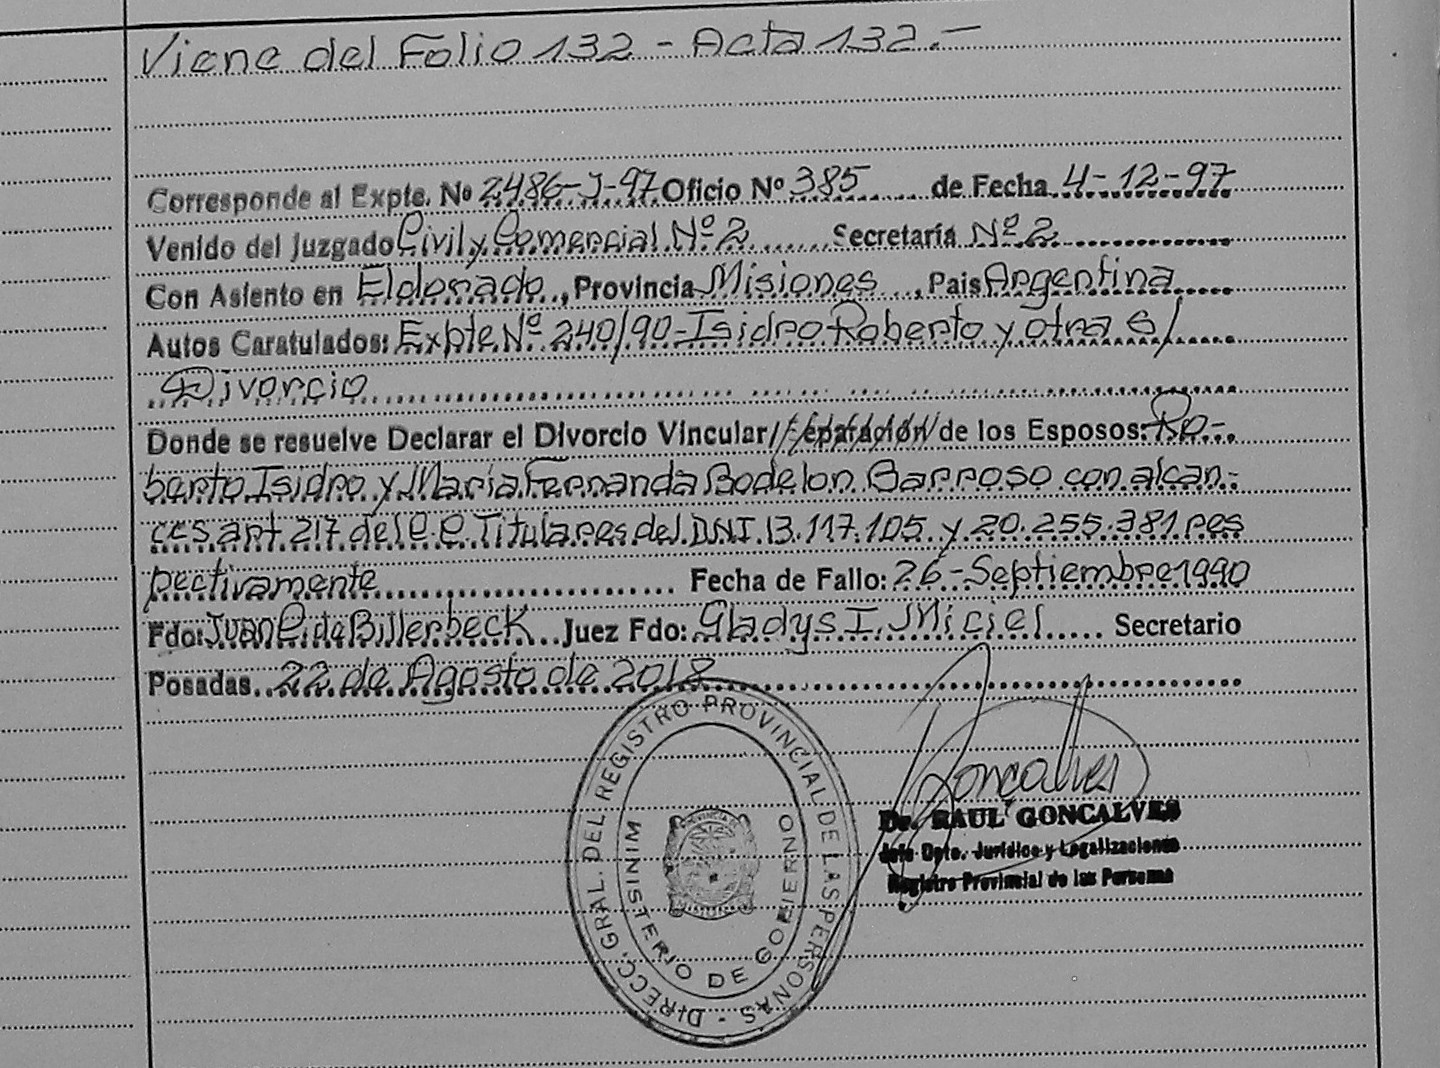 Viene del Folio 132 - Acta 132.-
Corresponde al Expte. Nº 2486-J-97 Oficio Nº 385 ...... de Fecha 4-12-97
Venido del Juzgado Civil y Comercial Nº 2 ....... Secretaría Nº 2
Con Asiento en Eldorado, Provincia Misiones, Pais Argentina
Autos Caratulados: Expte Nº 240/90 - Isidro Roberto y otra s/
Divorcio
Donde se resuelve Declarar el Divorcio Vincular/Separación/ de los Esposos: Ro-
berto Isidro y María Fernanda Bodelon Barroso con alcan-
ces art 217 del C.C. Titulares del DNI 13.117.105 y 20.255.381 res
pectivamente ........ Fecha de Fallo: 26-Septiembre 1990
Fdo: Juan C. de Billerbeck ... Juez Fdo: Gladys I. Miciel ..... Secretario
Posadas.. 22 de Agosto de 2018
DIRECC. GRAL. DEL REGISTRO PROVINCIAL DE LAS PERSONAS -
MINISTERIO DE GOBIERNO
PROVINCIA
Goncalves
Dr. RAUL GONCALVES
Jefe Dpto. Jurídico y Legalizaciones
Registro Provincial de las Personas